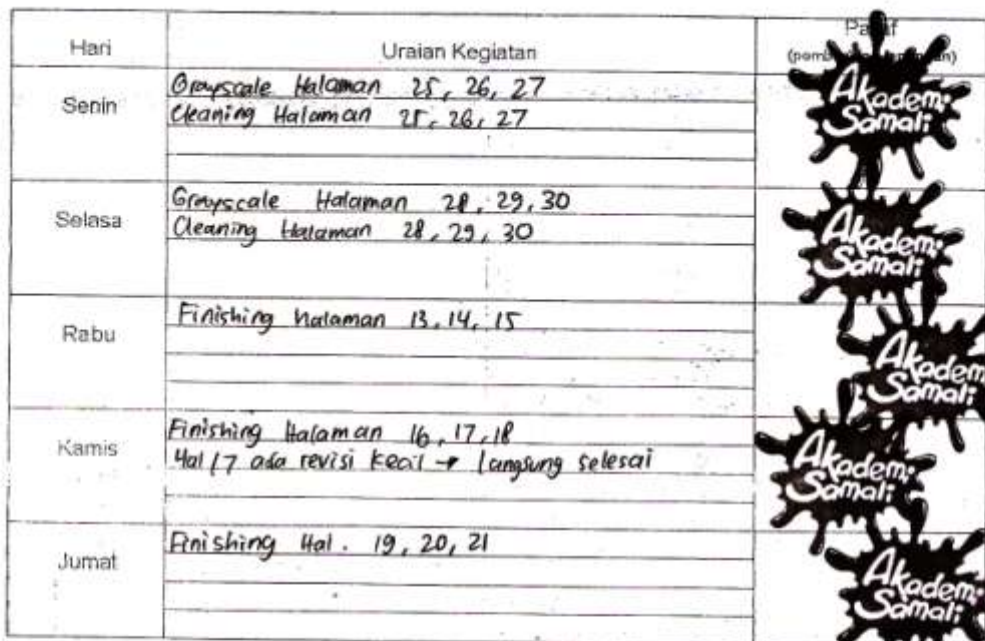 Hari
Uraian Kegiatan
Senin
Grayscale Halaman 25, 26, 27
Cleaning Halaman 25, 26, 27
Akademi
Samali
Selasa
Grayscale Halaman 28, 29, 30
Cleaning Halaman 28, 29, 30
Akademi
Samali
Rabu
Finishing halaman 13, 14, 15
Akademi
Samali
Kamis
Finishing Halaman 16, 17, 18
Hal 17 ada revisi kecil → langsung selesai
Akademi
Samali
Jumat
Finishing Hal. 19, 20, 21
Akademi
Samali